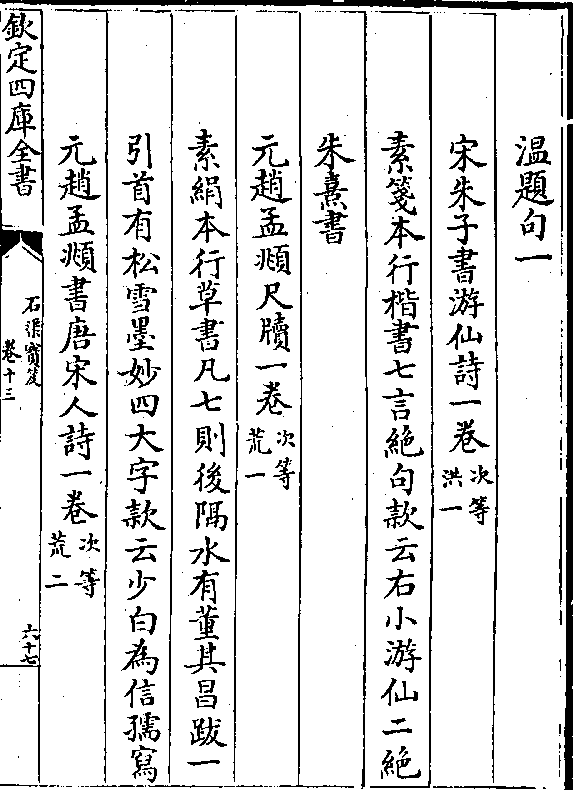 温題句一
宋朱子書游仙詩一卷次等洪一
素箋本行楷書七言絶句款云右小游仙二絶
朱熹書
元趙孟頫尺牘一卷次等荒一
素絹本行草書凡七則後隔水有董其昌跋一
引首有松雪墨妙四大字款云少白為信孺寫
元趙孟頫書唐宋人詩一卷次等荒二
欽定四庫全書
石渠寳笈
卷十三
六十七